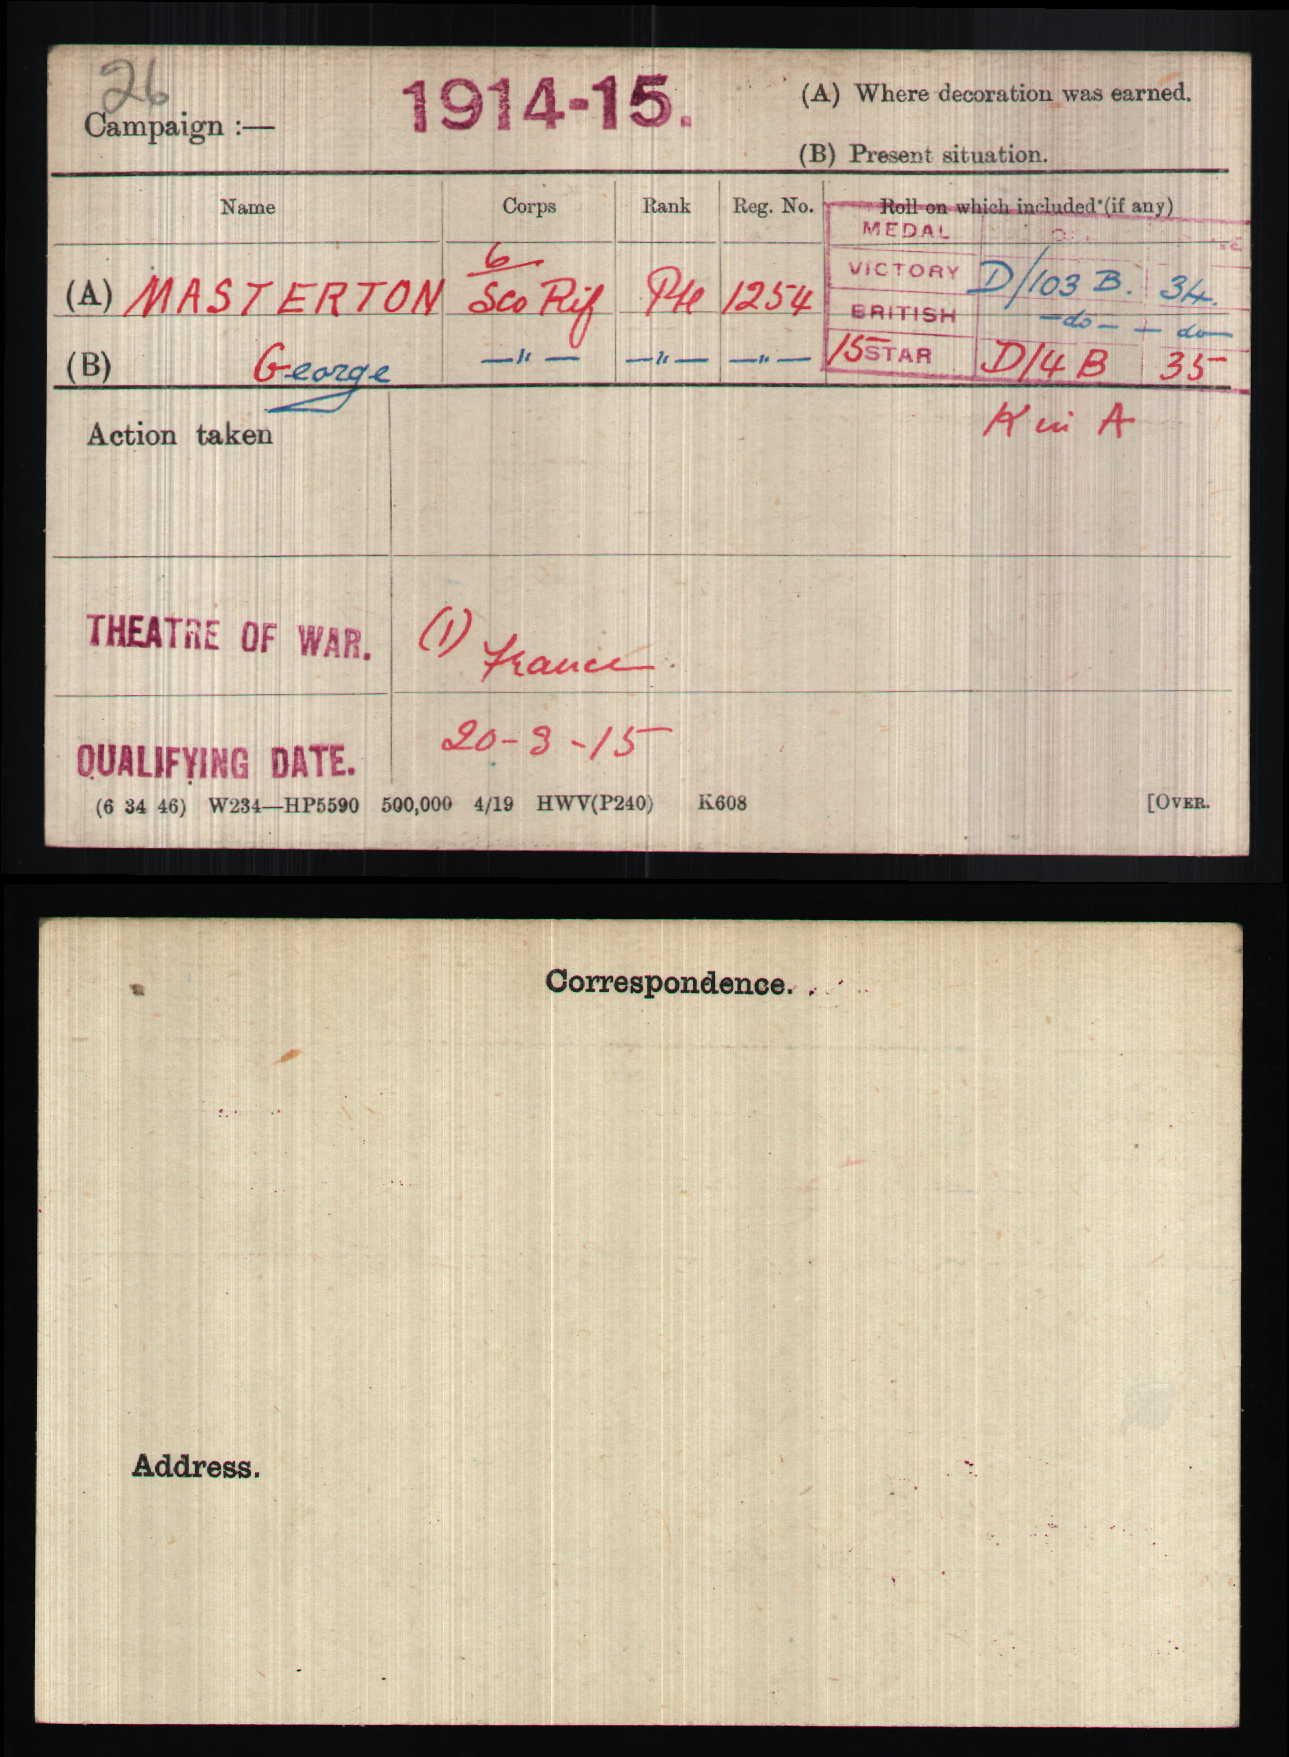 26
Campaign :—
1914-15.
(A) Where decoration was earned.
(B) Present situation.
Name Corps Rank Reg. No. Roll on which included (if any)
MEDAL
(A) MASTERTON 6 Sco Rif Pte 1254 VICTORY D/103 B. 34.
BRITISH —do— —do—
(B) George —"— —"— —"— 15 STAR D/4 B 35
Action taken
K in A
THEATRE OF WAR. (1) France.
QUALIFYING DATE. 20-3-15
(6 34 46) W234—HP5590 500,000 4/19 HWV(P240) K608 [OVER.
Correspondence.
Address.